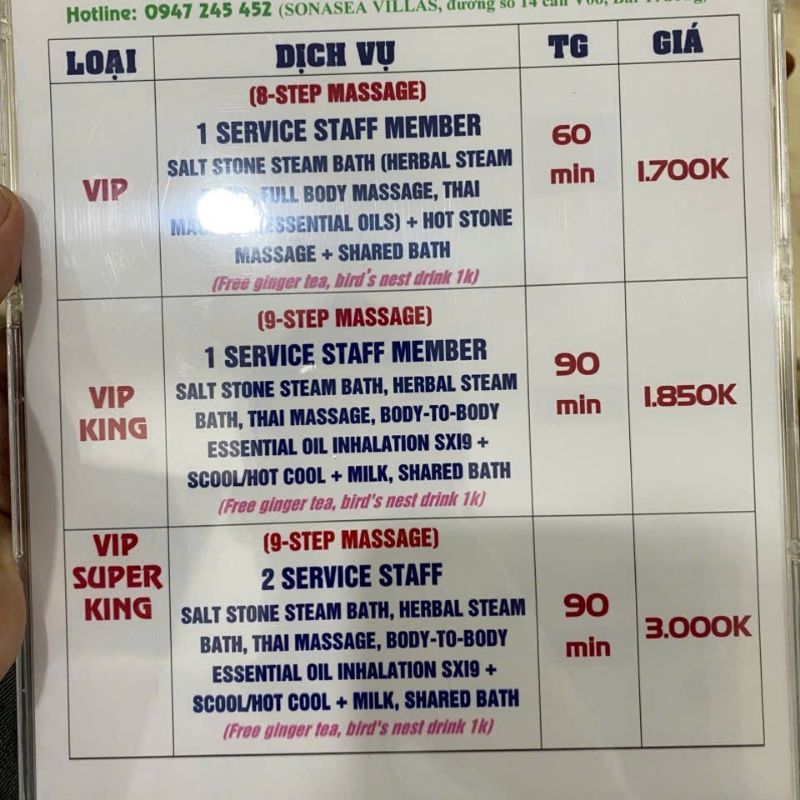 Hotline: 0947 245 452 (SONASEA VILLAS, đường số 14 căn V66, Bãi Trường)
LOẠI DỊCH VỤ TG GIÁ
(8-STEP MASSAGE)
1 SERVICE STAFF MEMBER
SALT STONE STEAM BATH (HERBAL STEAM
FULL BODY MASSAGE, THAI
(ESSENTIAL OILS) + HOT STONE
MASSAGE + SHARED BATH
(Free ginger tea, bird's nest drink 1k)
VIP
60
min
1.700K
(9-STEP MASSAGE)
1 SERVICE STAFF MEMBER
SALT STONE STEAM BATH, HERBAL STEAM
BATH, THAI MASSAGE, BODY-TO-BODY
ESSENTIAL OIL INHALATION SX19 +
SCOOL/HOT COOL + MILK, SHARED BATH
(Free ginger tea, bird's nest drink 1k)
VIP
KING
90
min
1.850K
(9-STEP MASSAGE)
2 SERVICE STAFF
SALT STONE STEAM BATH, HERBAL STEAM
BATH, THAI MASSAGE, BODY-TO-BODY
ESSENTIAL OIL INHALATION SX19 +
SCOOL/HOT COOL + MILK, SHARED BATH
(Free ginger tea, bird's nest drink 1k)
VIP
SUPER
KING
90
min
3.000K